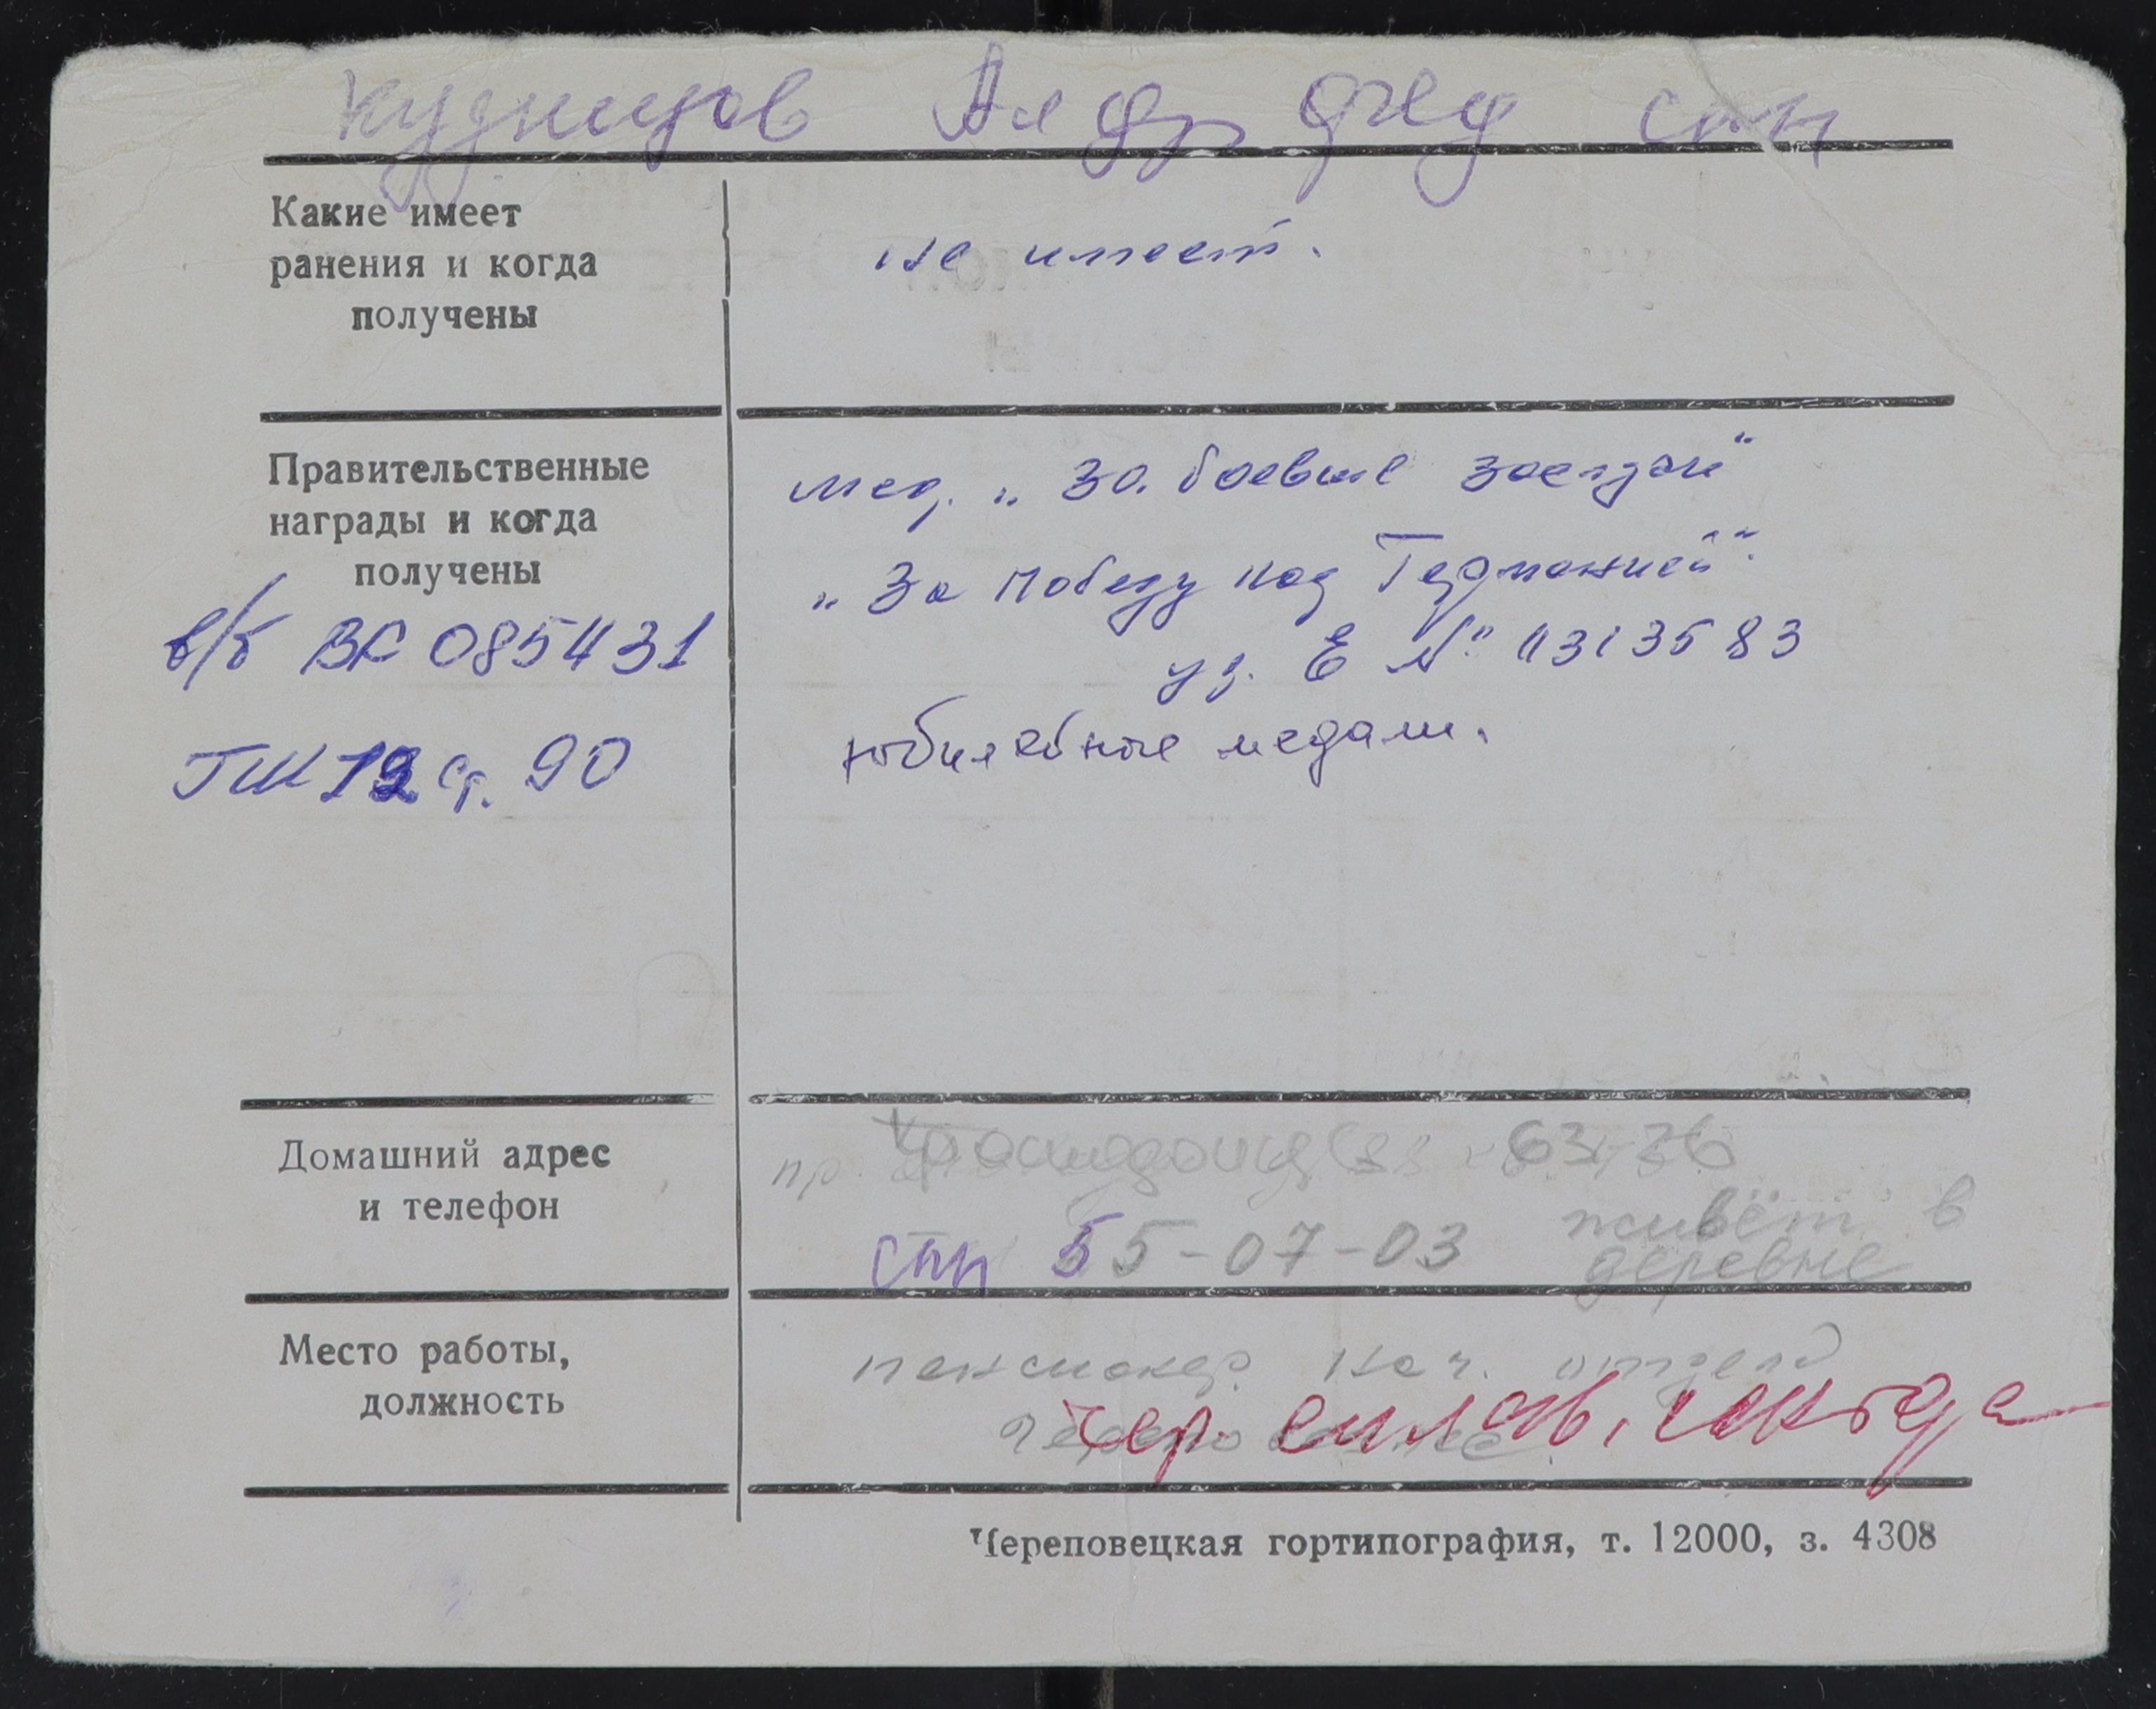 Кузнецов Ал др дчед сын
Какие имеет
ранения и когда
получены
не имеет.
Правительственные
награды и когда
получены
мед. „За боевые заслуги"
„За победу над Германией".
уд. Е № 0313583
юбилейные медали.
в/б ВК 0854431
ГШ 12 ст. 90
Домашний адрес
и телефон
пр. 63-36
сын 55-07-03 живёт в
деревне
Место работы,
должность
пенсионер. нач. отдела
Чер.
Череповецкая гортипография, т. 12000, з. 4308